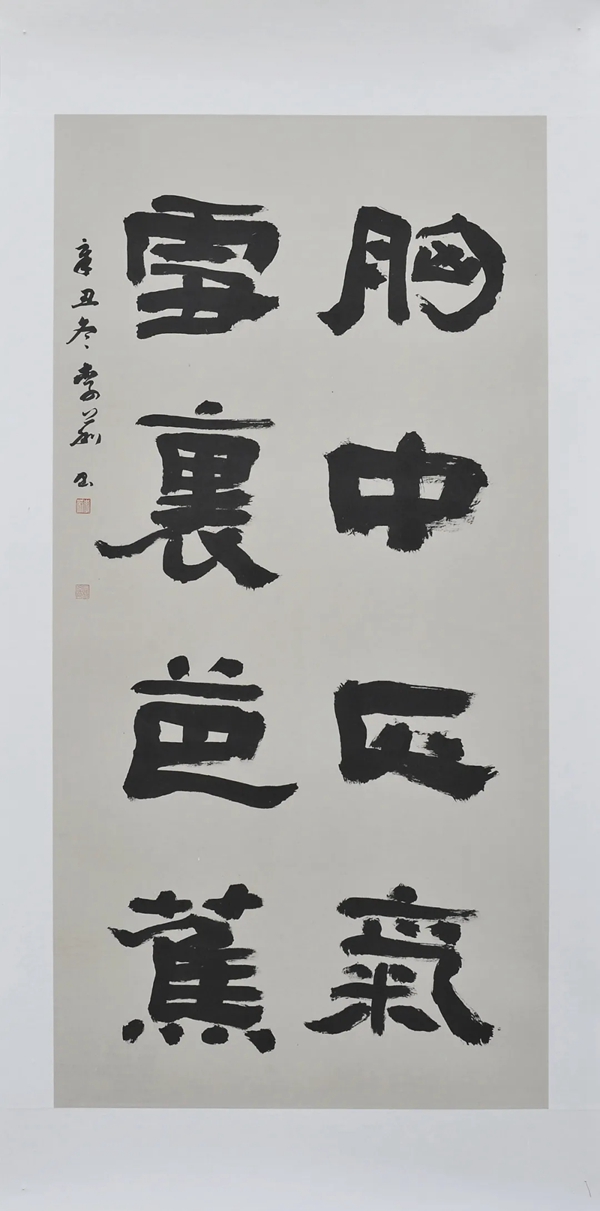 胸中正氣
雪裏芭蕉
辛丑冬李書